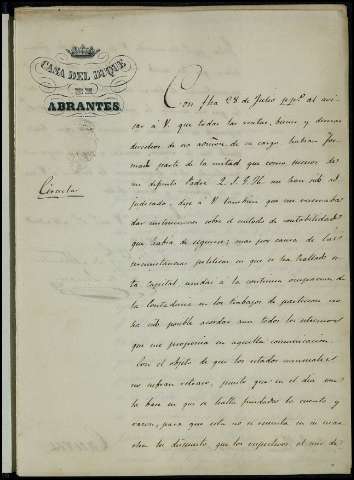 CASA DEL DUQUE
DE
ABRANTES
Circular
Con fha 28 de Julio ppº al avi-
sar á V. que todas las rentas, bienes y demas
derechos de esa admon de su cargo habian for-
mado parte de la mitad que como sucesor de
mi difunto Padre Q.S.G.H. me han sido ad-
judicado, dije á V. tambien que me reservaba
dar instrucciones sobre el metodo de contabilidad
que habia de seguirse; mas por causa de las
circunstancias politicas en que se ha hallado es-
ta capital, unidas á la continua ocupacion de
la Contaduria en los trabajos de particion no
ha sido posible acordar aun todos los estremos
que me proponia en aquella comunicacion.
Con el objeto de que los estados mensuales
no sufran retraso, puesto que en el dia son
la base en que se halla fundada la cuenta y
razon, para que esta no se resienta en su mar-
cha he dispuesto que los respectivos al mes de